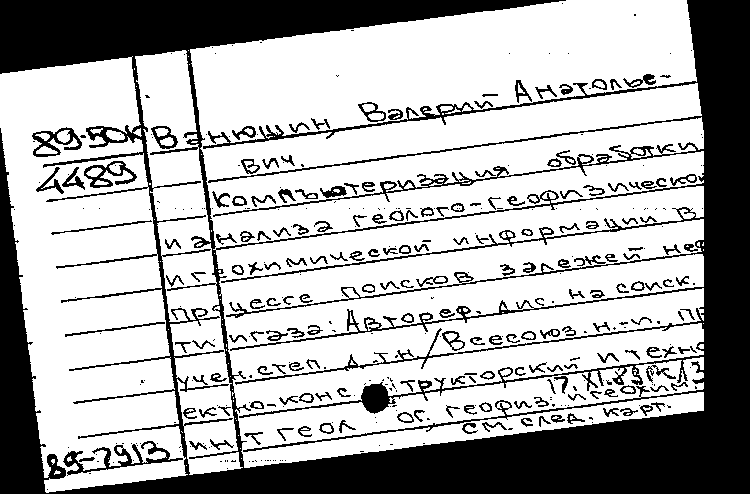 89-50К Ванюшин, Валерий Анатолье-
4489 вич.
Компьютеризация обработки
и анализа геолого-геофизической
и геохимической информации в
процессе поисков залежей неф
ти и газа: Автореф. дис. на соиск.
учен. степ. д.т.н. / Всесоюз. н.-и., пр
ектно-конструкторский и техно
ин-т геол. геофиз. и геохим
17.XI.89
см. след. карт.
89-7913